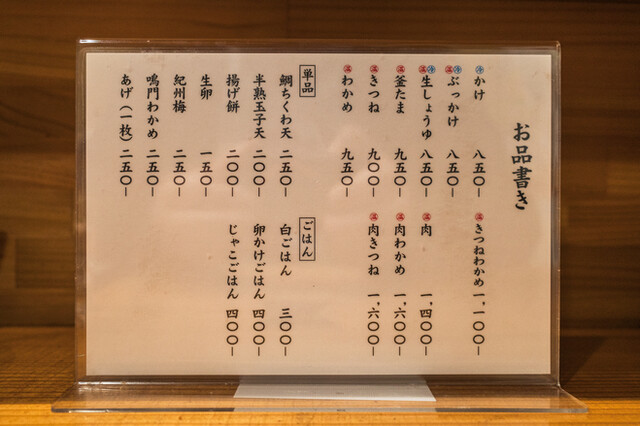 お品書き
かけ 八五〇-
ぶっかけ 八五〇-
生しょうゆ 八五〇-
釜たま 九五〇-
きつね 九〇〇-
わかめ 九五〇-
きつねわかめ 一,一〇〇-
肉 一,四〇〇-
肉わかめ 一,六〇〇-
肉きつね 一,六〇〇-
単品
鯛ちくわ天 二五〇-
半熟玉子天 二〇〇-
揚げ餅 二〇〇-
生卵 一五〇-
紀州梅 二五〇-
鳴門わかめ 二五〇-
あげ(一枚) 二五〇-
ごはん
白ごはん 三〇〇-
卵かけごはん 四〇〇-
じゃこごはん 四〇〇-